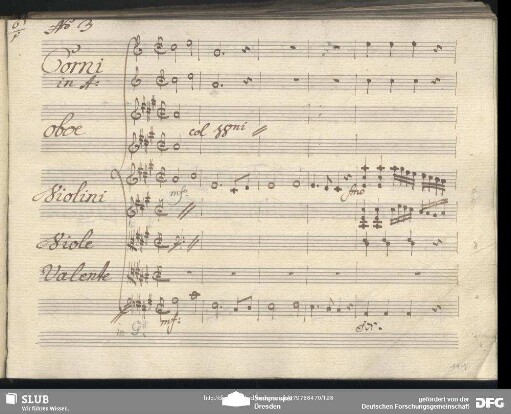 No 3
Corni
in A:
oboe
col VVni
Violini
mf:
fmo
Viole
Valente
mf:
for.
in G#
SLUB
Wir führen Wissen.
Dresden
gefördert von der
Deutschen Forschungsgemeinschaft
DFG